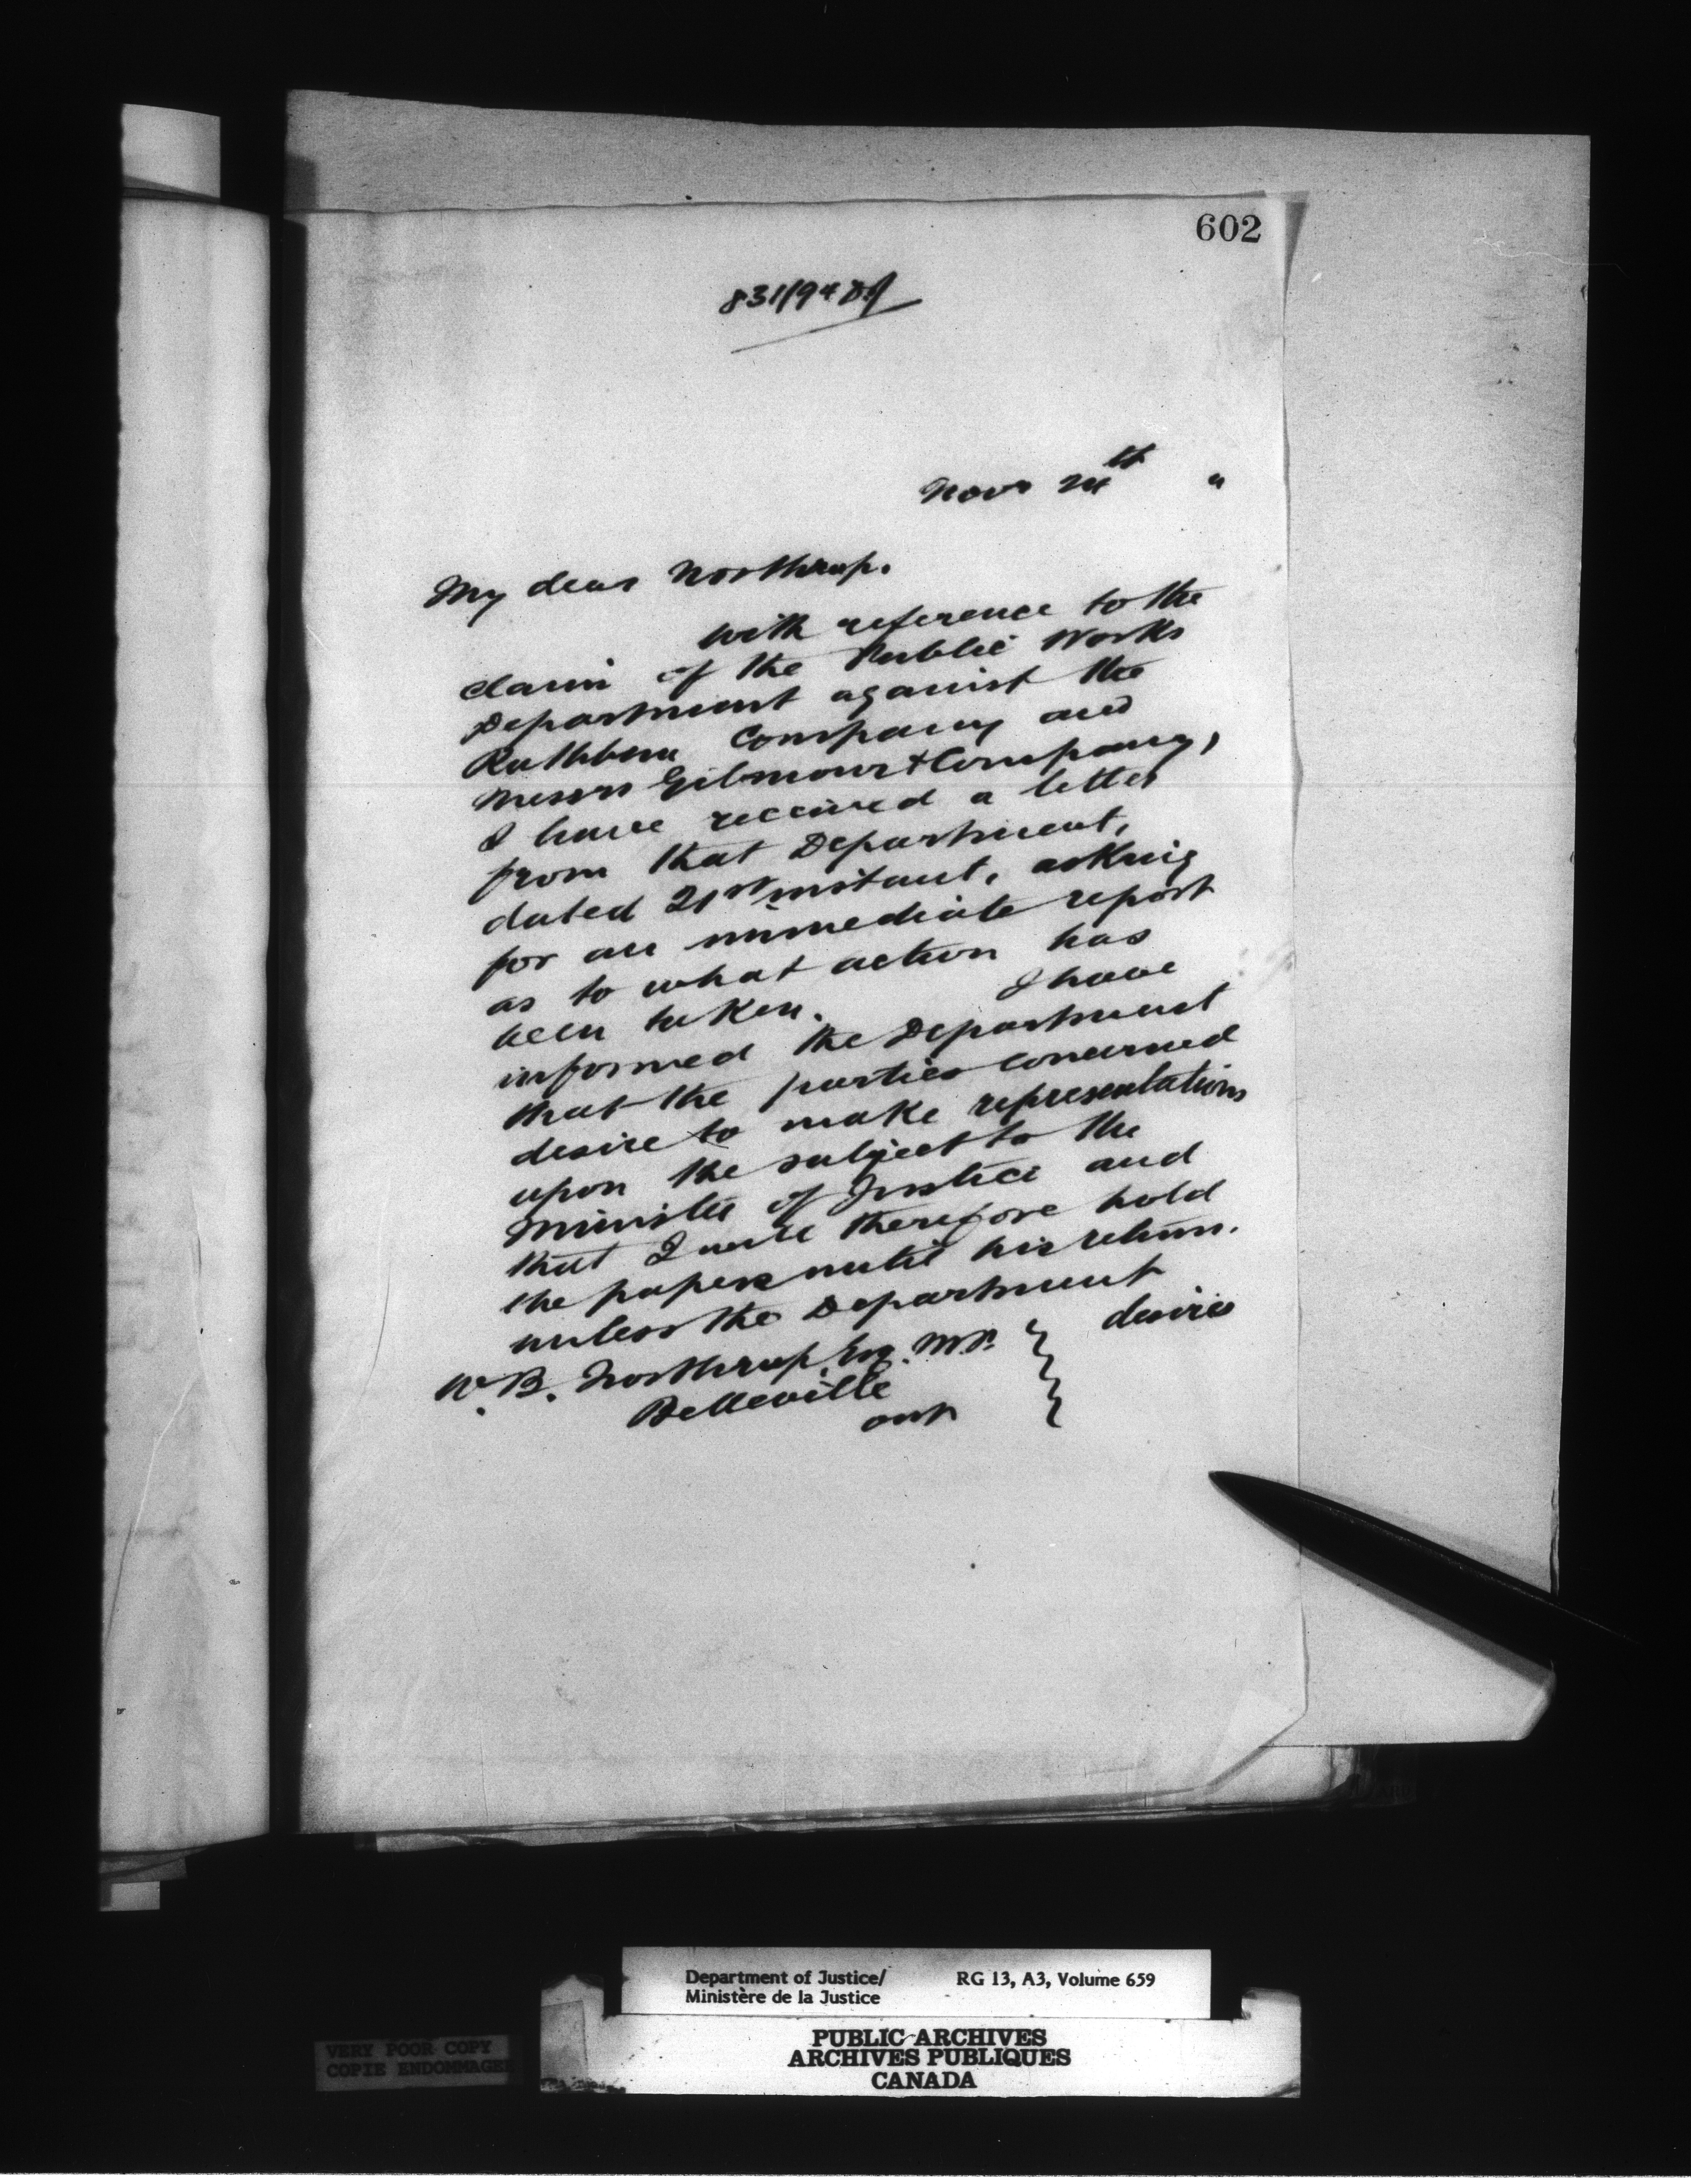 602
831/94
Novr 24th "
My dear Northrup.
with reference to the
claim of the Public Works
Department against the
Rathbun Company and
Messrs Gilmour & Company,
I have received a letter
from that Department,
dated 21st instant, asking
for an immediate report
as to what action has
been taken. I have
informed the Department
that the parties concerned
desire to make representations
upon the subject to the
Minister of Justice and
that I will therefore hold
the papers until his return.
unless the Department
desires
W. B. Northrup, Esq. M.P.
Belleville
Ont
Department of Justice/ RG 13, A3, Volume 659
Ministère de la Justice
PUBLIC ARCHIVES
ARCHIVES PUBLIQUES
CANADA
VERY POOR COPY
COPIE ENDOMMAGEE